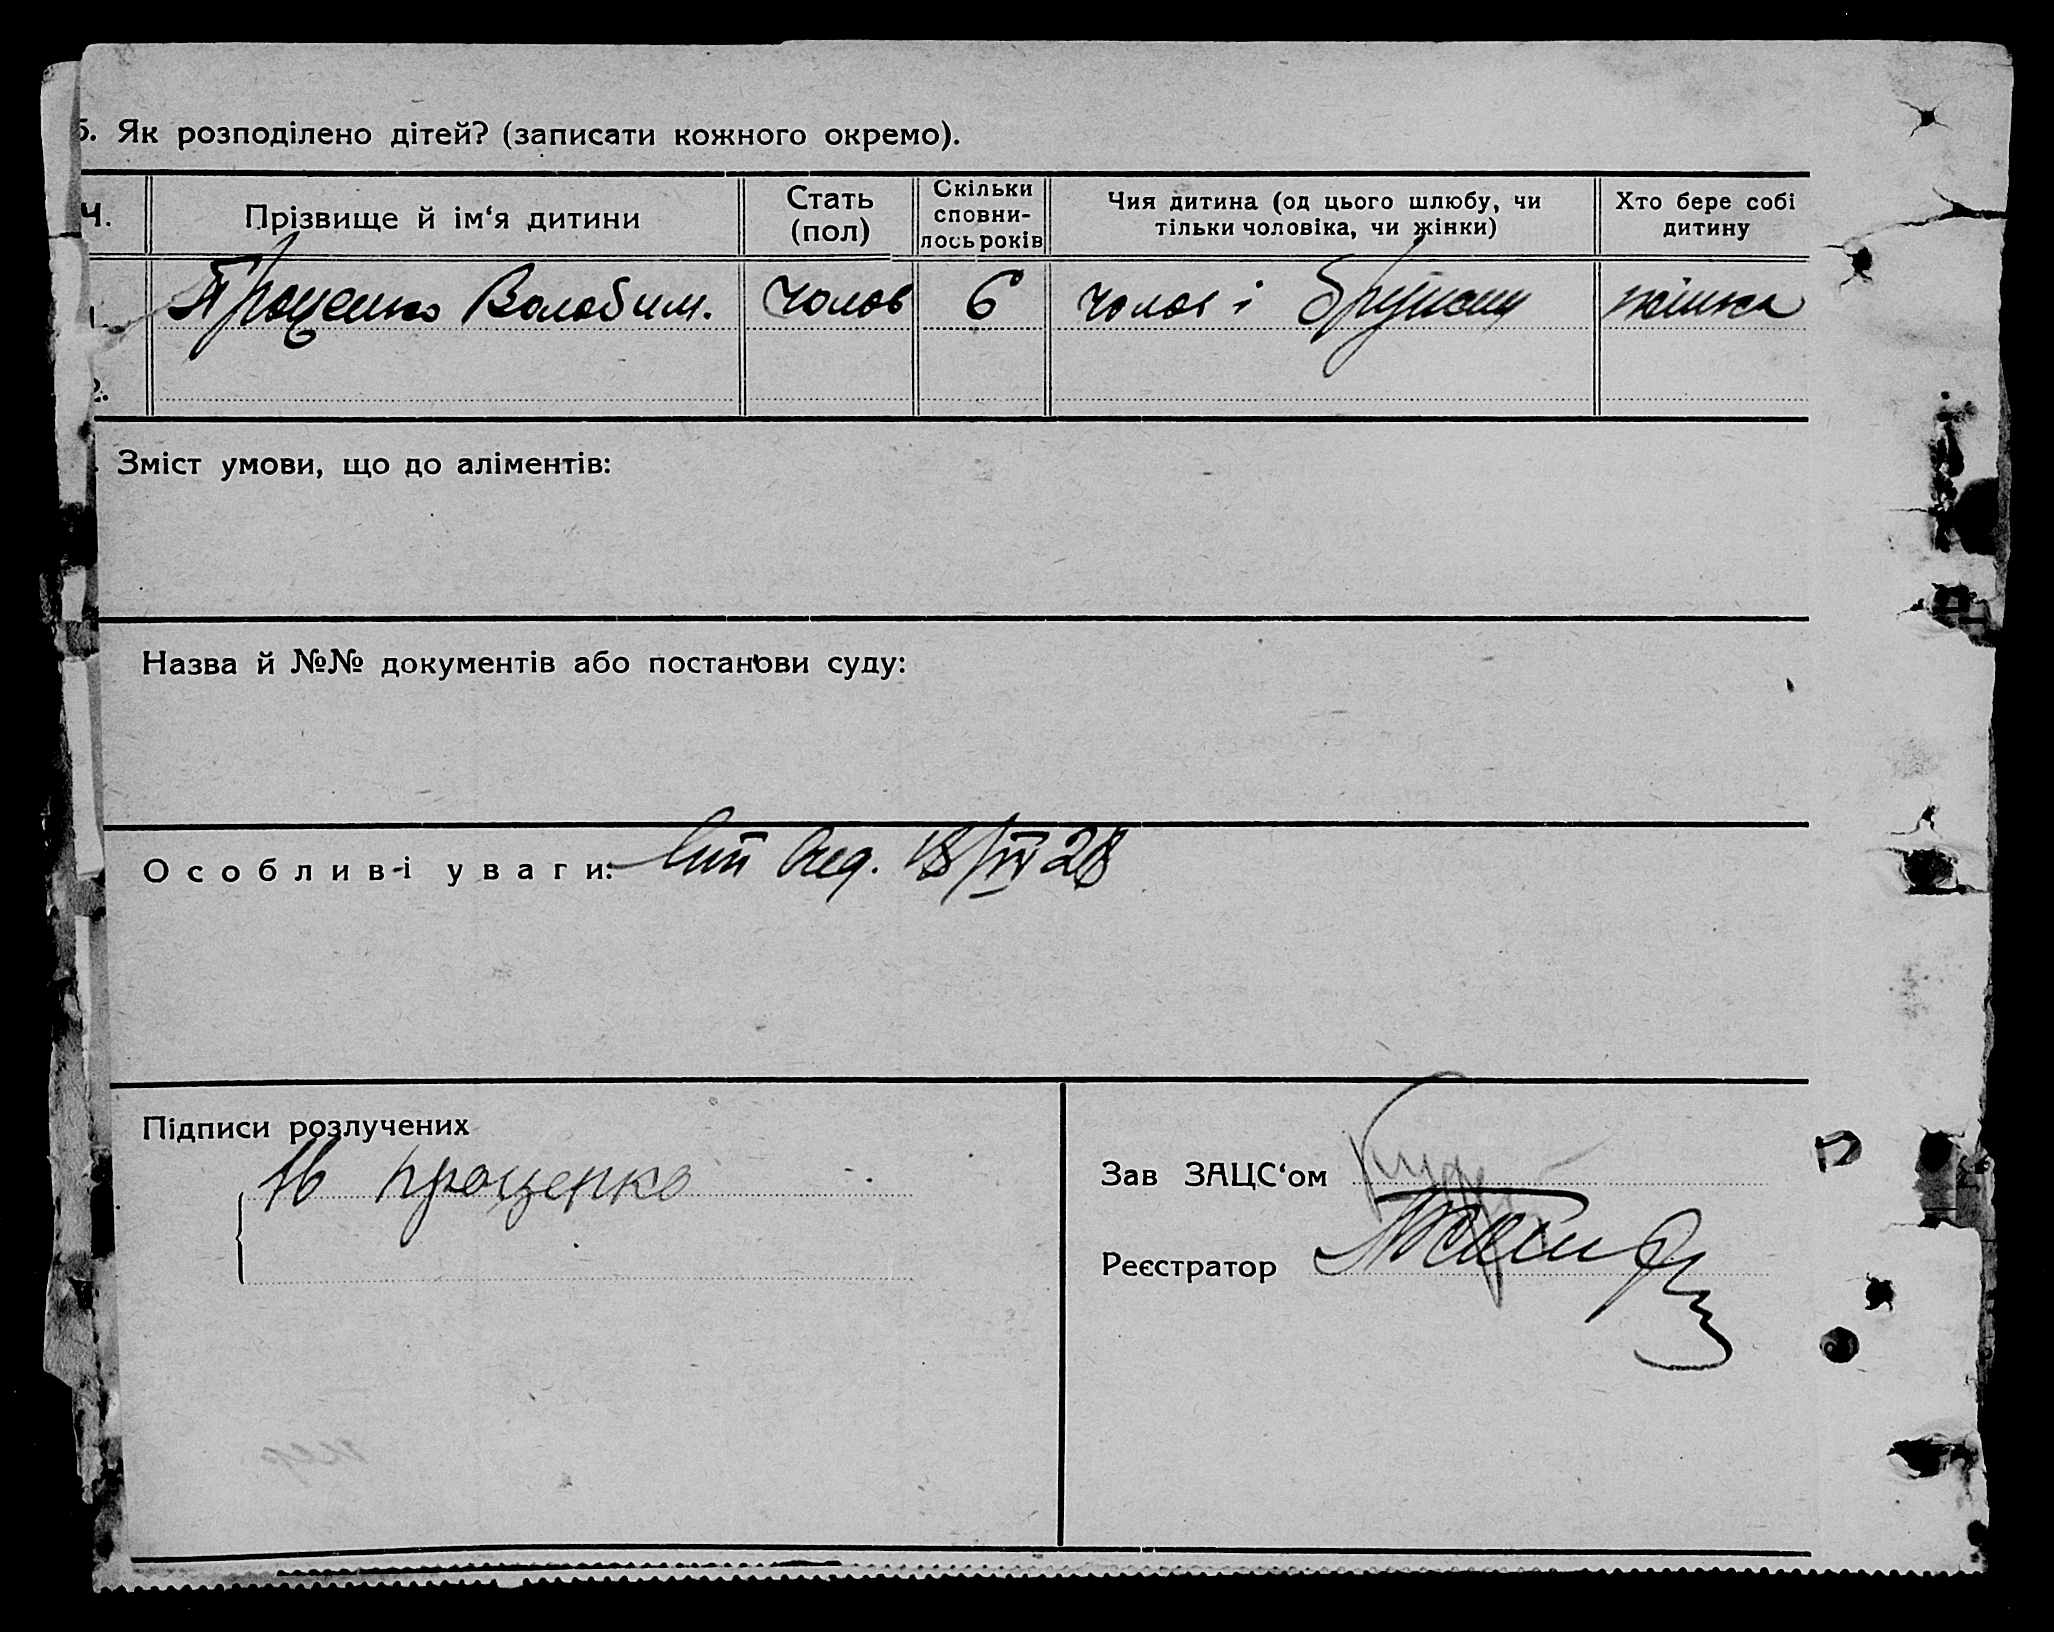 б. Як розподілено дітей? (записати кожного окремо).
Ч. Прізвище й ім‘я дитини Стать (пол) Скільки сповни- лось років Чия дитина (од цього шлюбу, чи тільки чоловіка, чи жінки) Хто бере собі дитину
1. Проценко Володим. Чолов 6 чолов і жінка
2.
Зміст умови, що до аліментів:
Назва й №№ документів або постанови суду:
Особливі уваги: 18/IV 28
Підписи розлучених
Проценко
Зав ЗАЦС‘ом
Реєстратор